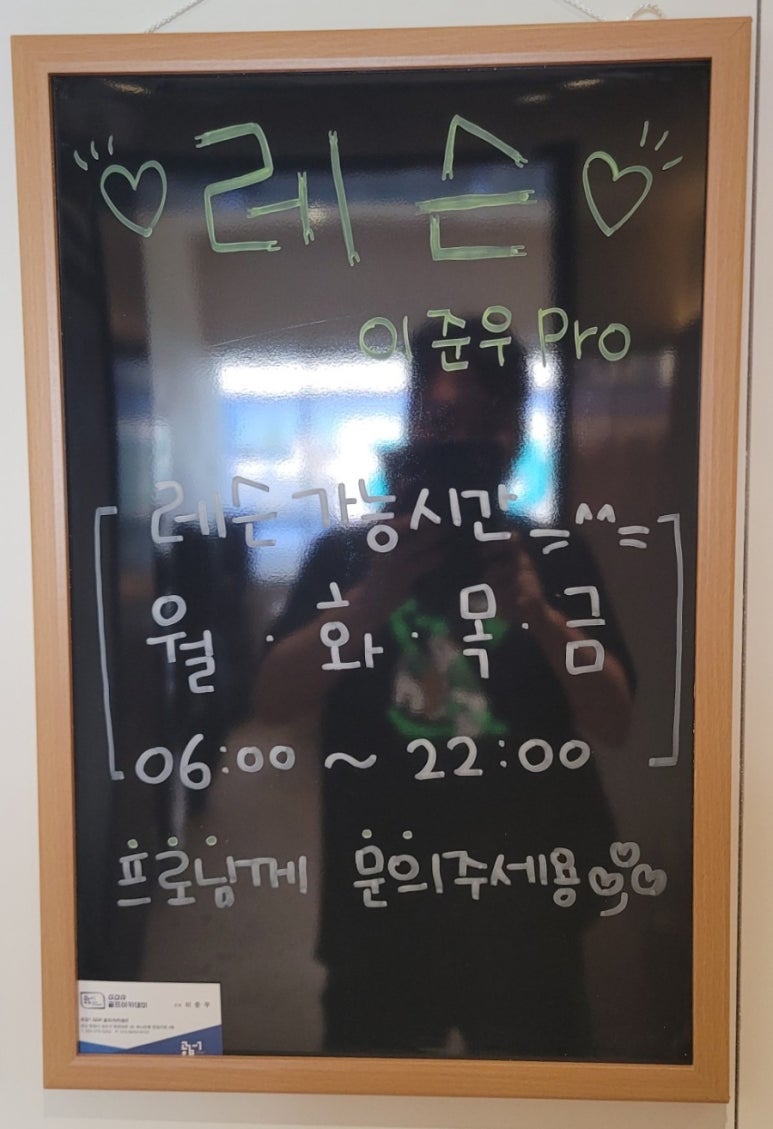 레슨
이준우 Pro
레슨 가능 시간
월 · 화 · 목 · 금
06:00 ~ 22:00
프로님께 문의주세용
GDR
골프아카데미
이준우